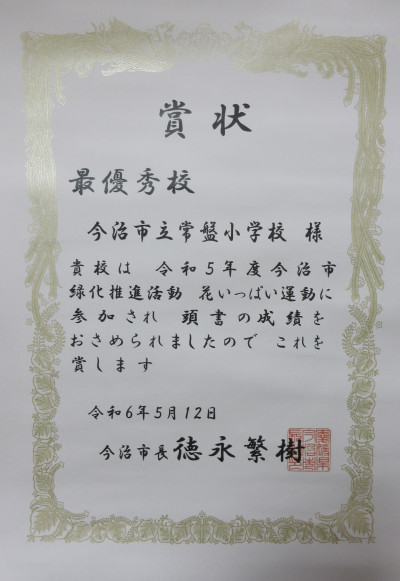 賞状
最優秀校
今治市立常盤小学校 様
貴校は 令和5年度今治市
緑化推進活動 花いっぱい運動に
参加され 頭書の成績を
おさめられましたので これを
賞します
令和6年5月12日
今治市長 徳永繁樹